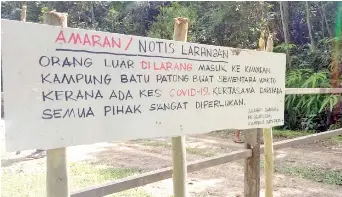 AMARAN/ NOTIS LARANGAN
ORANG LUAR DILARANG MASUK KE KAWASAN
KAMPUNG BATU PATONG BUAT SEMENTARA WAKTU
KERANA ADA KES COVID-19. KERJASAMA DARIPADA
SEMUA PIHAK SANGAT DIPERLUKAN.